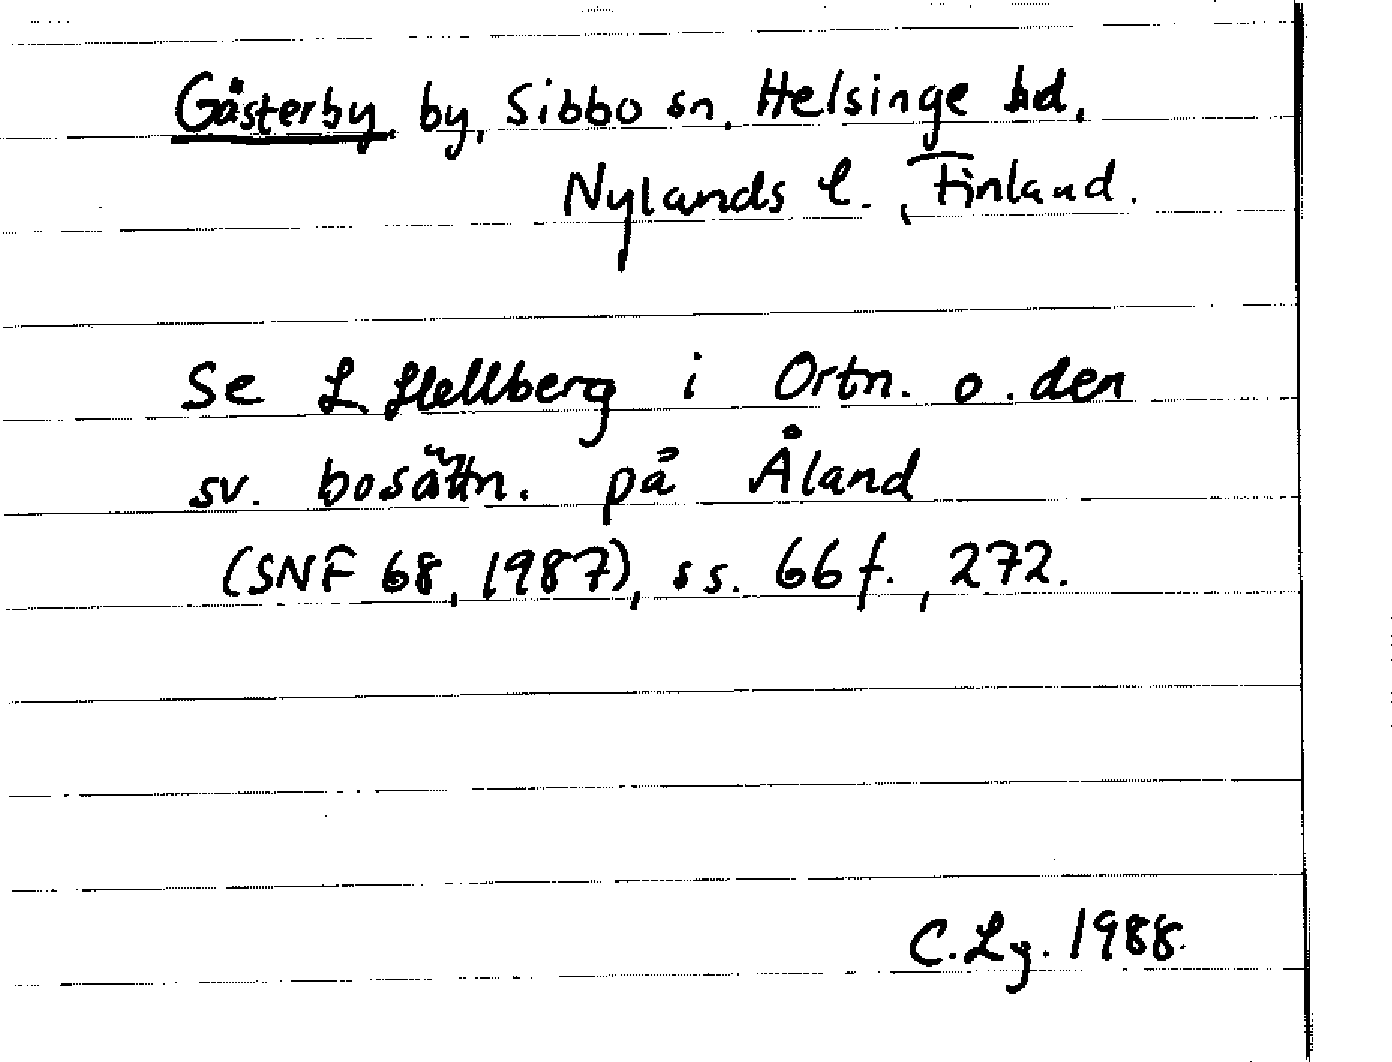 Gästerby by, Sibbo sn, Helsinge hd,
Nylands l., Finland.
Se L Hellberg i Ortn. o. den
sv. bosättn. på Åland
(SNF 68, 1987), ss. 66 f., 272.
C. Lg. 1988